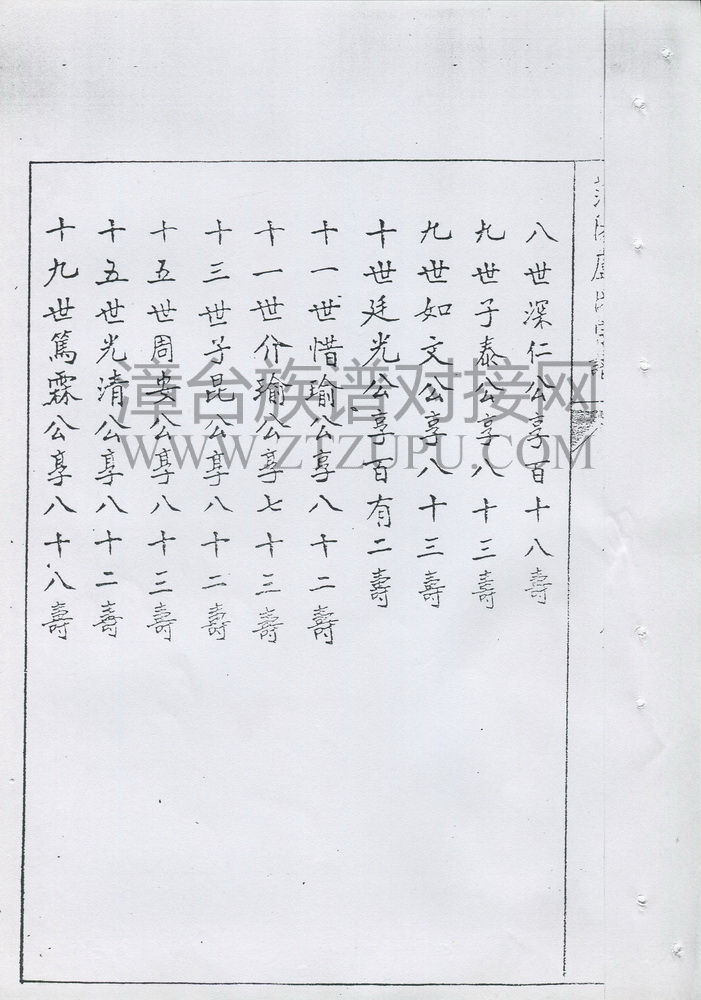 八世深仁公享百十八壽
九世子泰公享八十三壽
九世如文公享八十三壽
十世廷光公享百有二壽
十一世惜瑜公享八十二壽
十一世介瑜公享七十三壽
十三世子昆公享八十二壽
十五世周安公享八十三壽
十五世光清公享八十二壽
十九世篤霖公享八十八壽
漳台族谱对接网
WWW.ZTZUPU.COM